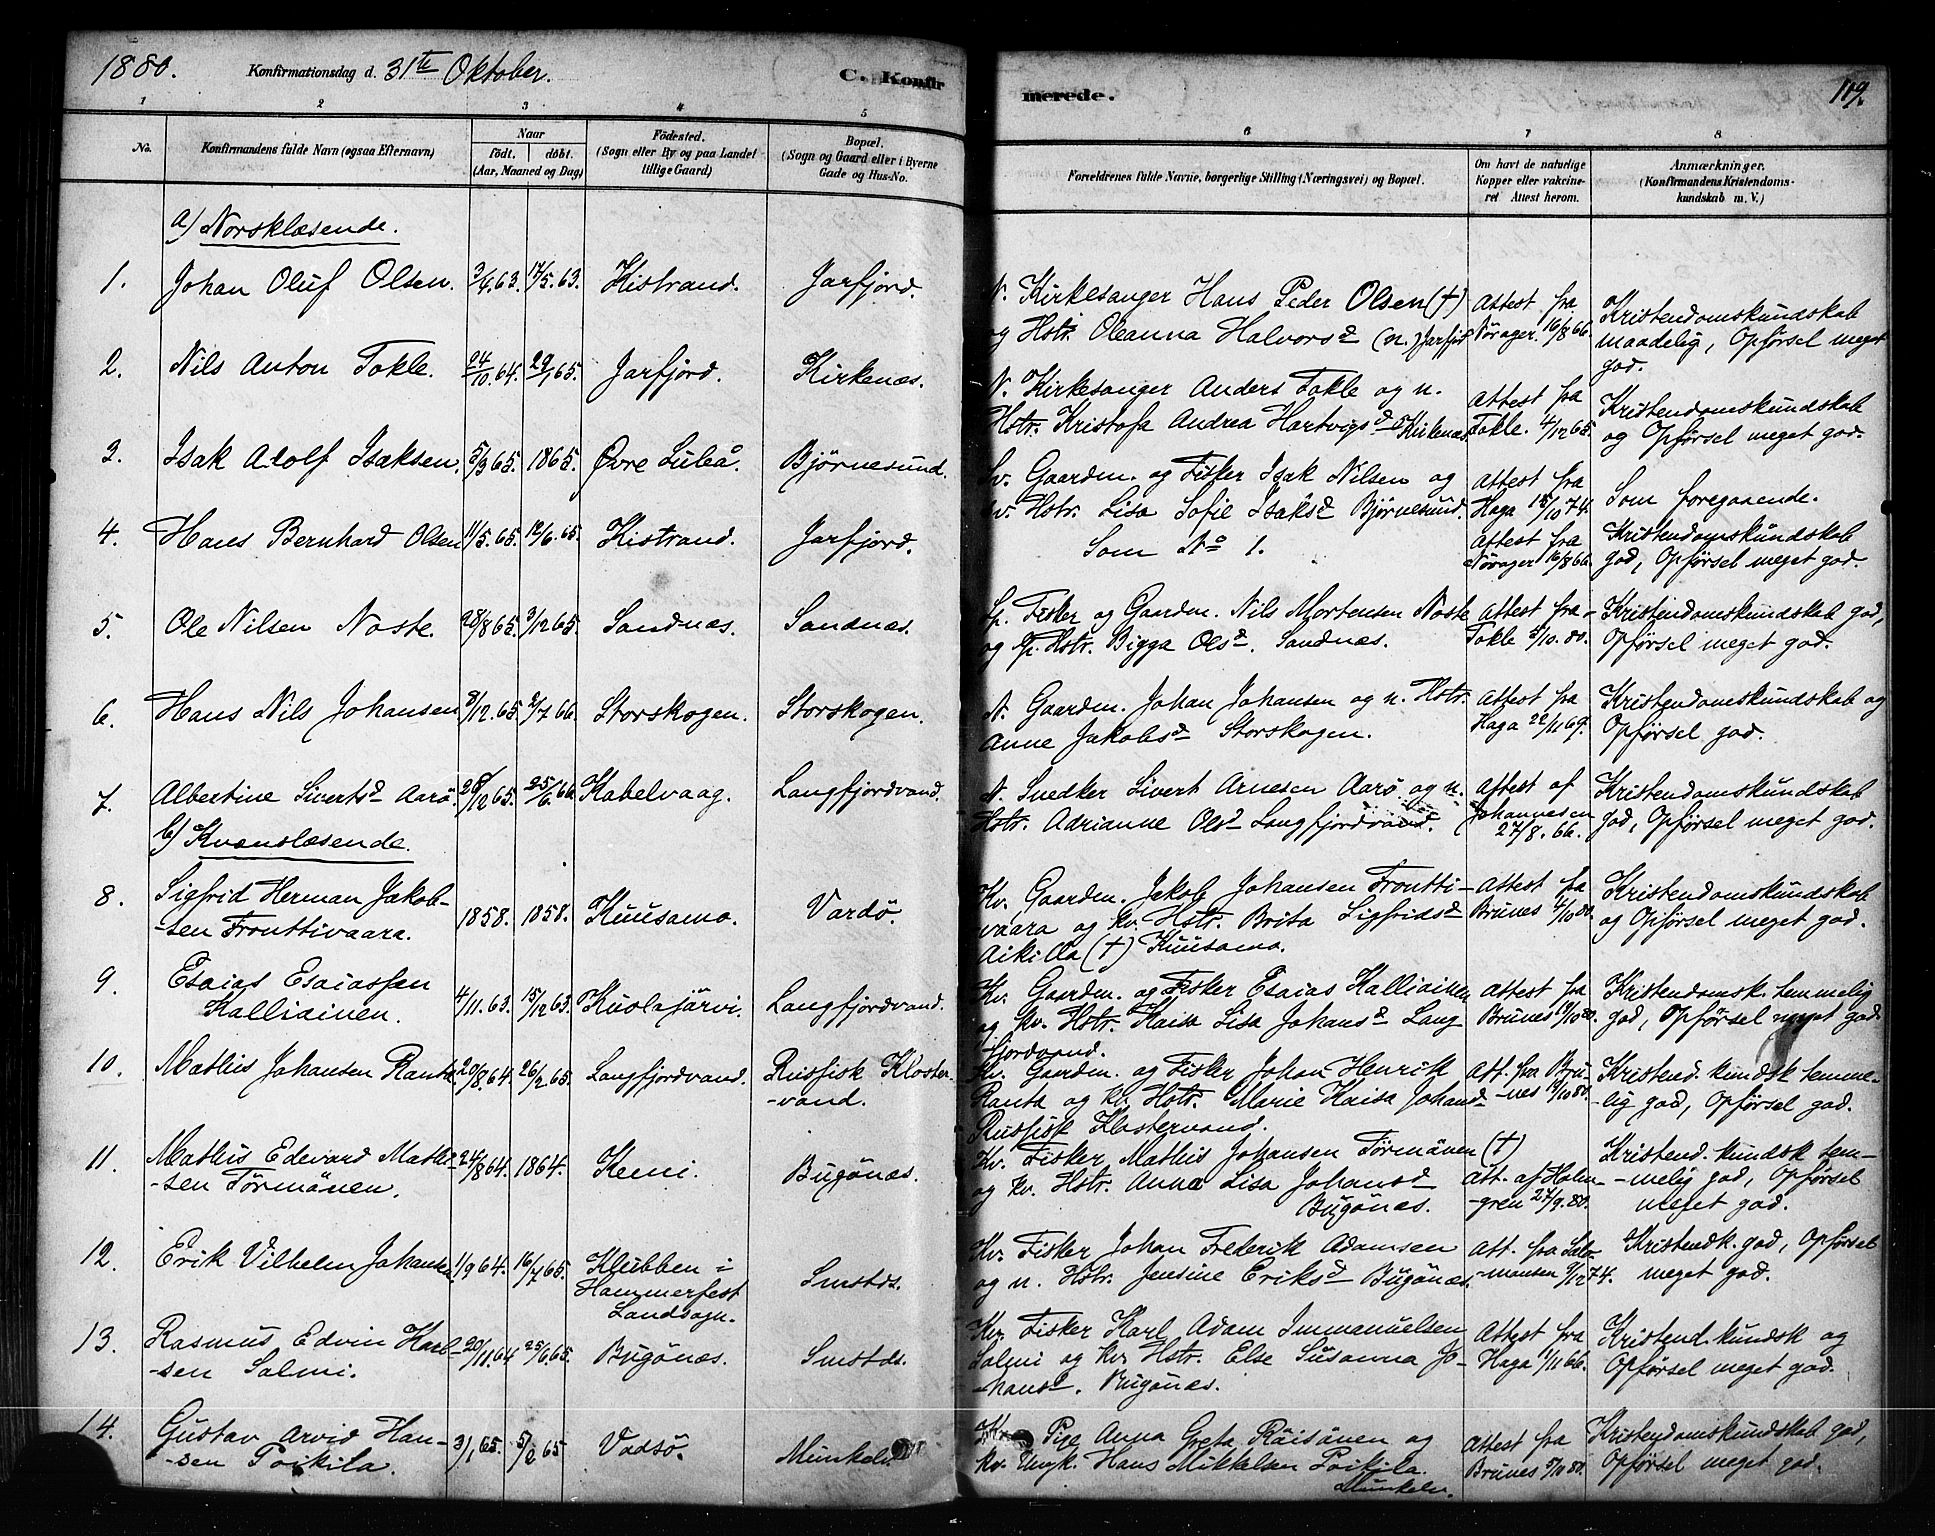 1880. Konfirmationsdag d. 31te Oktober. C. Konfir
merede. 119.
1 2 3 4 5 6 7 8
No. Konfirmandens fulde Navn (ogsaa Efternavn) Naar födt. döbt. (Aar, Maaned og Dag) Födested. (Sogn eller By og paa Landet tillige Gaard) Bopæl. (Sogn og Gaard eller i Byerne Gade og Hus-No. Forældrenes fulde Navne, borgerlige Stilling (Næringsvei) og Bopæl. Om havt de naturlige Kopper eller vakcineret Attest herom. Anmærkninger. (Konfirmandens Kristendomskundskab m. V.)
a) Norsklæsende.
1. Johan Oluf Olsen. 3/4.63. 17/5.63. Kistrand. Jarfjord.
N. Kirkesanger Hans Peder Olsen (†)
og Hstr. Oleanna Halvorsd (n.) Jarfjd
Attest fra
Nørager. 16/8 66.
Kristendomskundskab
maadelig, Opførsel meget
god.
2. Nils Anton Tokle. 24/10.64. 29/1.65. Jarfjord. Kirkenæs.
N. Kirkesanger Anders Tokle og n.
Hstr. Kristofa Andrea Hartvigsd Kirkenæs.
Attest fra
Tokle. 4/12 65.
Kristendomskundskab
og Opførsel meget god.
3. Isak Adolf Isaksen. 5/3 65. 1865. Øvre Luleå. Bjørnesund.
Sv. Gaardm. og Fisker Isak Nilsen og
sv. Hstr. Lisa Sofie Isaksd Bjørnesund.
Attest fra
Haga 15/10 74.
Som foregaaende.
4. Hans Bernhard Olsen 11/5.65. 12/6.65. Kistrand. Jarfjord.
Som No 1.
Attest fra
Nørager 16/8 66.
Kristendomskundskab
god, Opførsel meget god.
5. Ole Nilsen Noste. 28/8 65. 3/12 65. Sandnæs. Sandnæs.
Lp. Fisker og Gaardm. Nils Mortensen Noste
og lp. Hstr. Bigga Olsd. Sandnæs.
Attest fra
Tokle 3/10. 80.
Kristendomskundskab god,
Opførsel meget god.
6. Hans Nils Johansen 8/12.65. 2/7 66. Storskogen. Storskogen.
N. Gaardm. Johan Johansen og n. Hstr.
Anne Jakobsd Storskogen.
Attest fra
Haga 22/11 69.
Kristendomskundskab og
Opførsel god.
7. Albertine Sivertsd Aarö 28/12 65. 25/6.66. Kabelvaag. Langfjordvand.
N. Snedker Sivert Arnesen Aarö og n.
Hstr. Adrianne Olsd Langfjordvand.
Attest af
Johannesen
27/8. 66.
Kristendomskundskab
god, Opførsel meget god.
b) Kvænslæsende.
8. Sigfrid Herman Jakob-
-sen Fronttivaara. 1858. 1858. Kuusamo. Vardö.
Kv. Gaardm. Jakob Johansen Frontti-
vaara og kv. Hstr. Brita Sigfridsd
Aikilla (†) Kuusamo.
Attest fra
Brunes 4/10 80.
Kristendomskundskab
og Opførsel meget god.
9. Esaias Esaiassen
Kalliainen. 4/11.63. 15/12 63. Kuolajärvi. Langfjordvand.
Kv. Gaardm. og Fisker Esaias Kalliainen
og kv. Hstr. Kaisa Lisa Johansd Lang
-fjordvand.
Attest fra
Brunes 19/10 80.
Kristendomsk. temmelig
god, Opførsel meget god.
10. Mathis Johansen Ranta. 20/8.64. 26/2.65. Langfjordvand. Russisk Kloster-
-vand.
Kv. Gaardm. og Fisker Johan Henrik
Ranta og kv. Hstr. Marie Kaisa Johansd
Russisk Klostervand.
Att. fra Bru-
-nes 19/10 80.
Kristend. kundsk temme-
-lig god, Opførsel god.
11. Mathis Edevard Mathi-
-sen Törmänen. 24/8 64. 1864. Kemi. Bugönæs.
Kv. Fisker Mathis Johansen Törmänen (†)
og kv. Hstr. Anna Lisa Johansd
Bugönæs.
Att. af Holm-
-gren 27/9.80.
Kristend. kundsk tem-
-melig god, Opförsel
meget god.
12. Erik Vilhelm Johansen 1/9 64. 16/7 65. Klubben i
Hammerfest
Landsogn. Smstds.
Kv. Fisker Johan Frederik Adamsen
og n. Hstr. Jensine Eriksd Bugönæs.
Att. fra Salo-
-monsen 3/12 74.
Kristendk. god, Opførsel
meget god.
13. Rasmus Edvin Karl-
-sen Salmi. 20/11.64 25/6.65. Bugönæs. Smstds.
Kv. Fisker Karl Adam Immanuelsen
Salmi og kv Hstr. Else Susanna Jo-
-hansd. Bugönæs.
Attest fra
Haga 1/11 66.
Kristend. kundsk og
Opførsel meget god.
14. Gustav Arvid Han-
-sen Poikila. 3/1 65. 5/2 65 Vadsö. Munkelv
Pige Anna Greta Räisänen og
kv. Ungk. Hans Mikkelsen Poikila.
Munkelv.
Attest fra
Brunes 5/10 80.
Kristendomskundskab god,
Opførsel meget god.